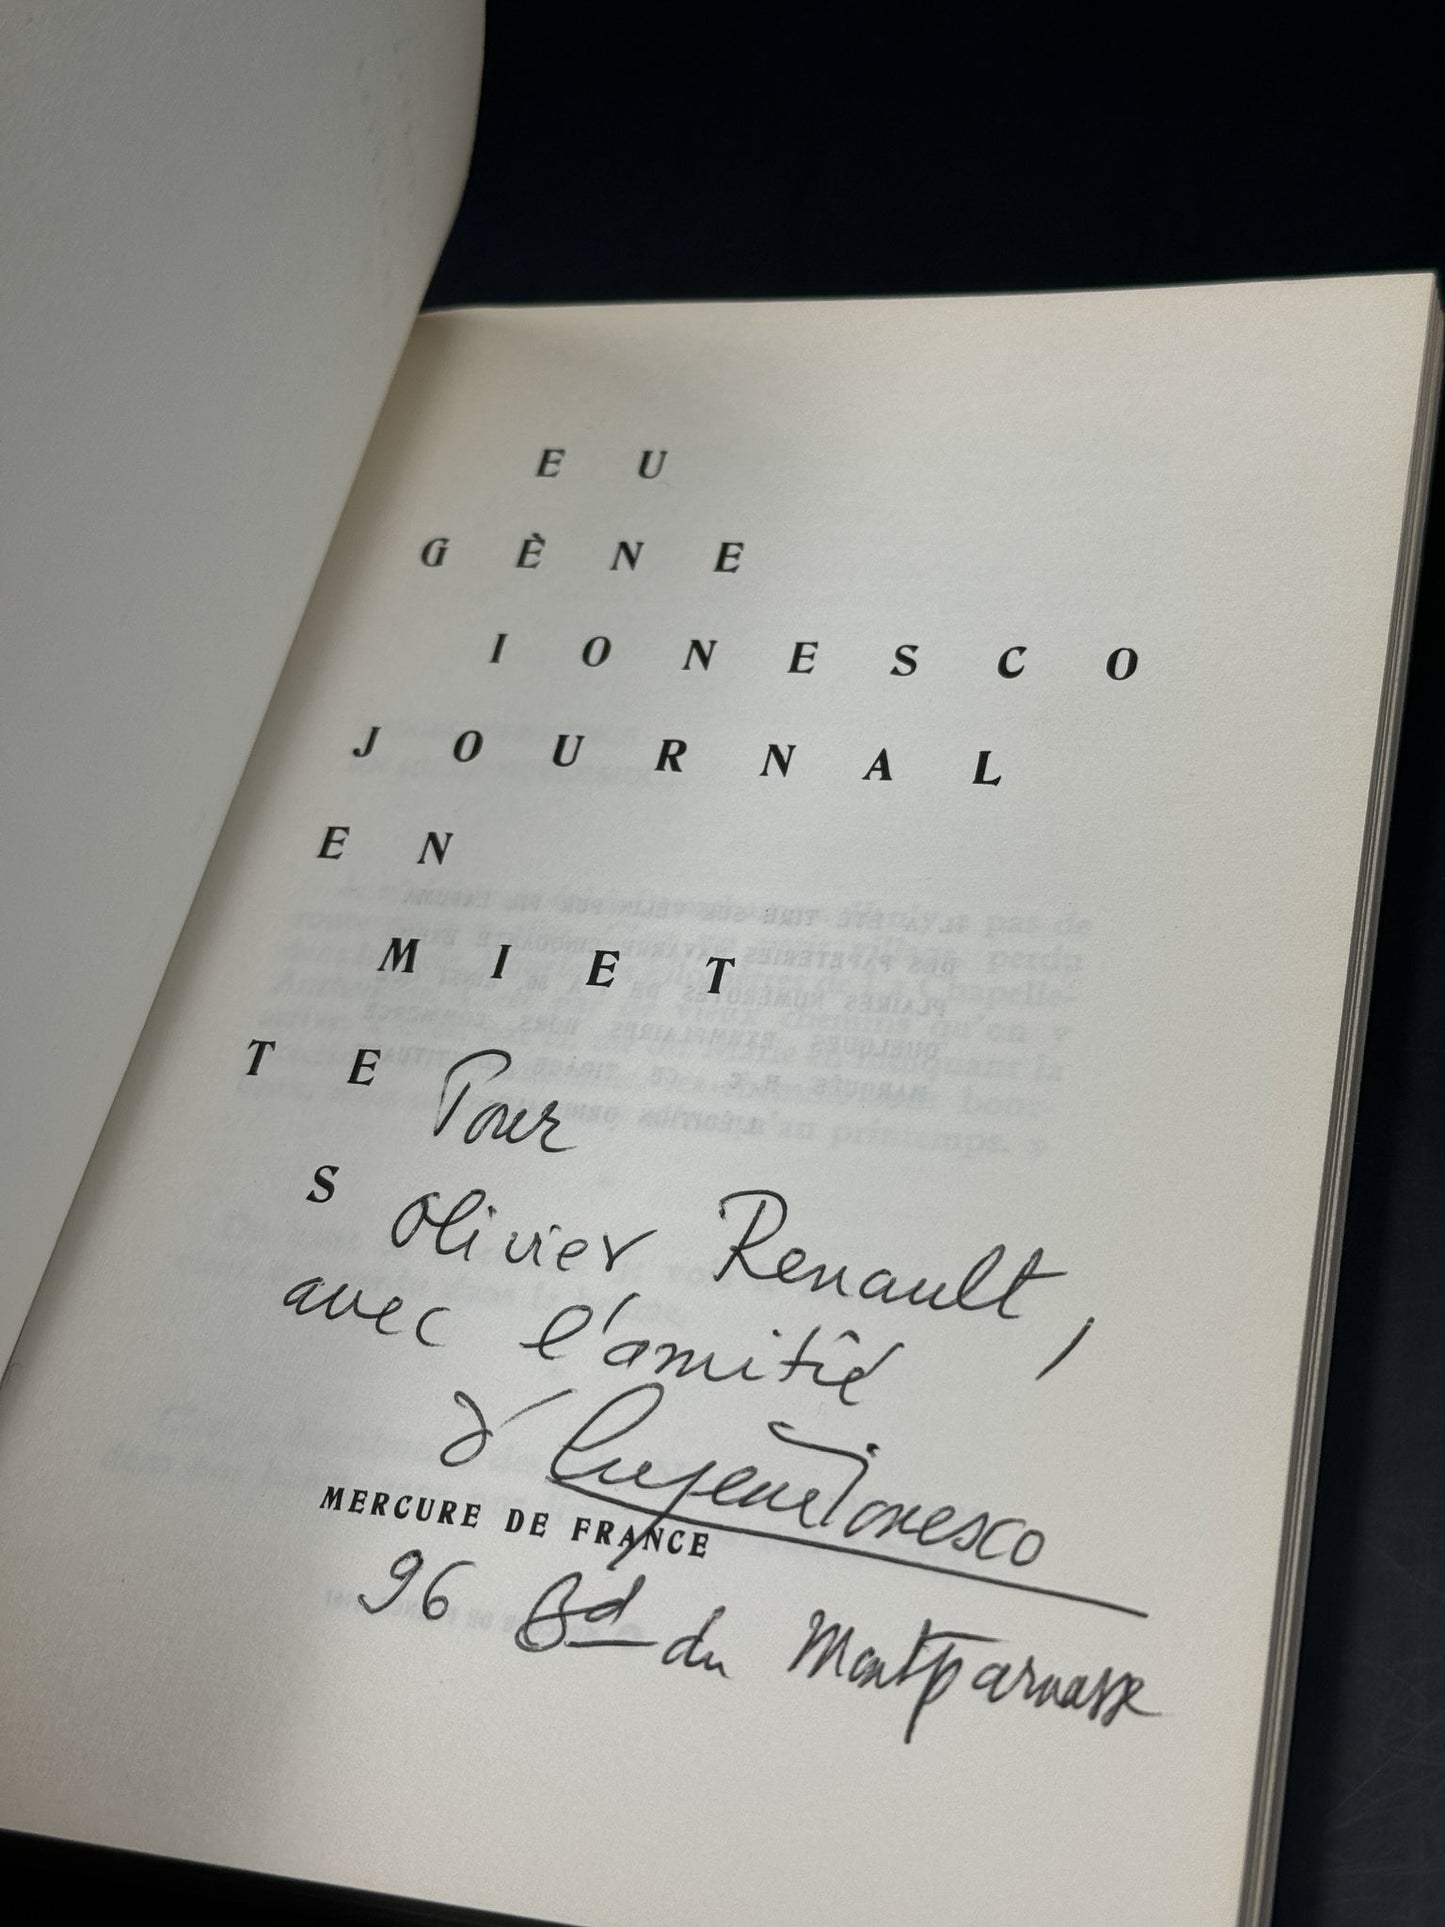 E U
G È N E
I O N E S C O
J O U R N A L
E N
M I E T
T E
S
Pour
Olivier Renault,
avec l'amitié
d'Eugène Ionesco
MERCURE DE FRANCE
96 Bd du Montparnasse